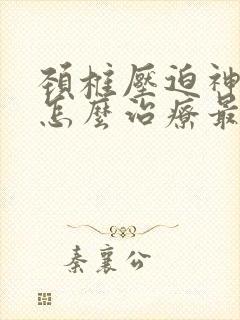 頚椎壓迫神
怎麼治療最
秦襄公